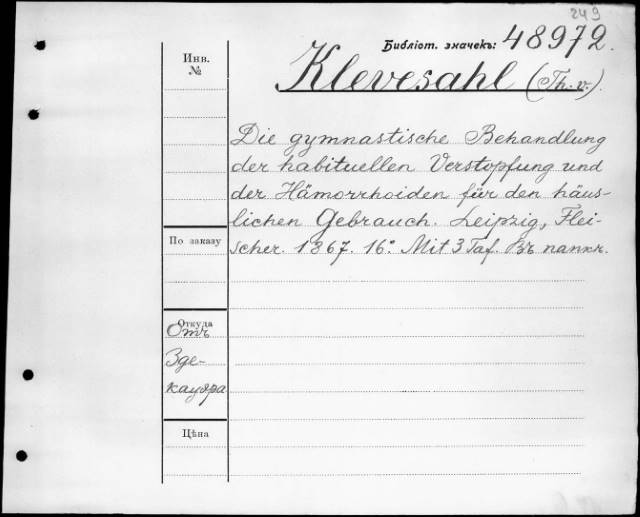 249
Библіот. значекъ: 48972.
Klevesahl (Th. v.).
Инв.
№
Die gymnastische Behandlung
der habituellen Verstopfung und
der Hämorrhoiden für den häus-
lichen Gebrauch. Leipzig, Flei-
scher. 1867. 16°. Mit 3 Taf. Въ папкѣ.
По заказу
Откуда
Отъ
Зде-
кауера
Цѣна